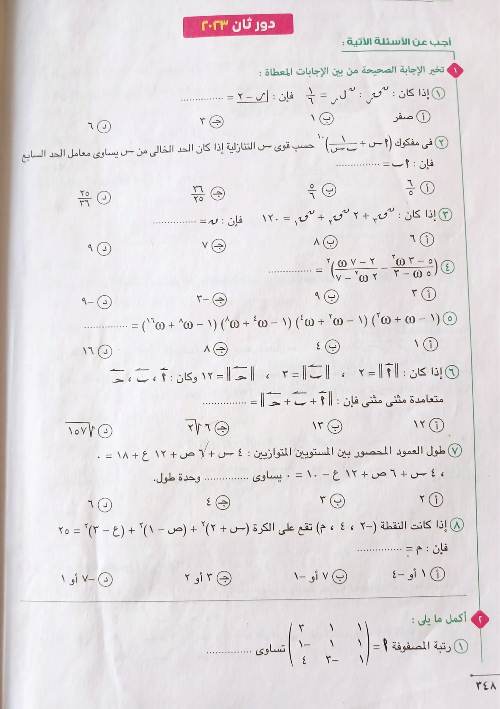 دور ثان ٢٠٢٣
أجب عن الأسئلة الآتية :
١ تخير الإجابة الصحيحة من بين الإجابات المعطاة :
١ إذا كان : ⁿق ر : ⁿل ر = ١/٦ فإن : |ر – ٢ = ............
أ صفر ب ١ ج ٣ د ٦
٢ فى مفكوك (أ س + ١/ب س)¹⁰ حسب قوى س التنازلية إذا كان الحد الخالى من س يساوى معامل الحد السابع
فإن : أ ب = ............
أ ٦/٥ ب ٥/٦ ج ٣٦/٢٥ د ٢٥/٣٦
٣ إذا كان : ⁿق٣ + ٢ ⁿق٢ + ⁿق١ = ١٢٠ فإن : ن = ............
أ ٦ ب ٨ ج ٧ د ٩
٤ ((٥ – ٣ ω²)/(٥ ω – ٣) – (٢ – ٧ ω)/(٢ ω² – ٧))² = ............
أ ٣ ب ٩ ج –٣ د –٩
٥ (١ – ω + ω²) (١ – ω² + ω⁴) (١ – ω⁴ + ω⁸) (١ – ω⁸ + ω¹⁶) = ............
أ ١ ب ٤ ج ٨ د ١٦
٦ إذا كان : ||أ|| = ٢ ، ||ب|| = ٣ ، ||جـ|| = ١٢ وكان : أ ، ب ، جـ
متعامدة مثنى مثنى فإن : ||أ + ب + جـ|| = ............
أ ١٢ ب ١٣ ج ٦√٢ د √١٥٧
٧ طول العمود المحصور بين المستويين المتوازيين : ٤ س + ٦ ص + ١٢ ع + ١٨ = ٠
، ٤ س + ٦ ص + ١٢ ع – ١٠ = ٠ يساوى ............ وحدة طول.
أ ٢ ب ٣ ج ٤ د ٦
٨ إذا كانت النقطة (–٢ ، ٤ ، م) تقع على الكرة (س + ٢)² + (ص – ١)² + (ع – ٣)² = ٢٥
فإن : م = ............
أ ١ أو –٤ ب ٧ أو –١ ج ٣ أو ٢ د –٧ أو ١
٢ أكمل ما يلى :
١ رتبة المصفوفة أ = (١ ١ ٣
١ ١ –١
١ –٣ ٤) تساوى ............
٣٤٨